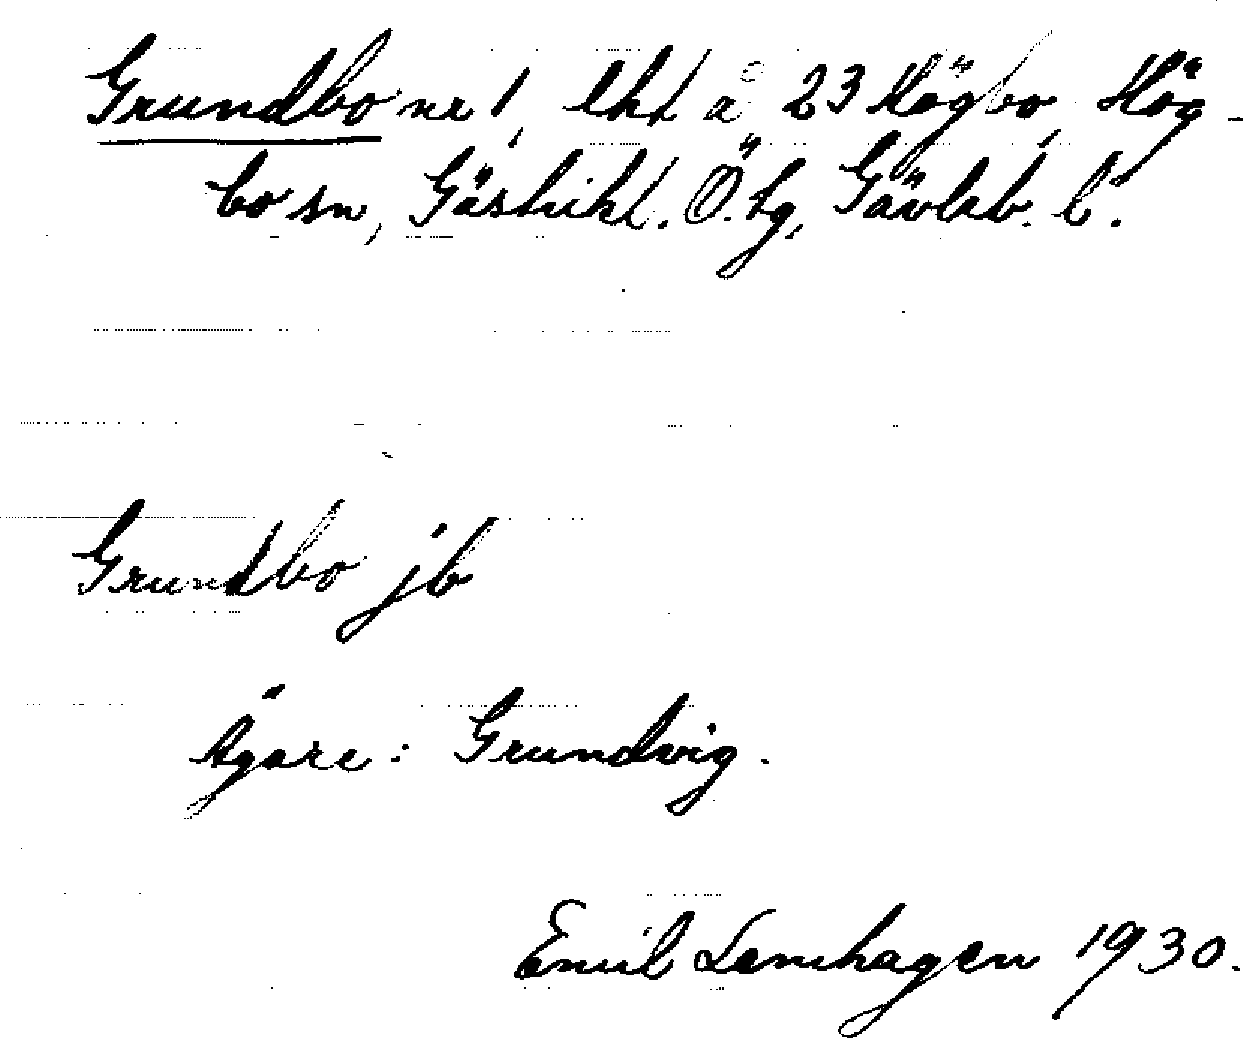 Grundbo nr 1, lht å 23 Högbo, Hög-
bo sn, Gästrikl. Ö. tg, Gävleb. l.
Grundbo jb
Ägare: Grundvig.
Emil Lemhagen 1930.